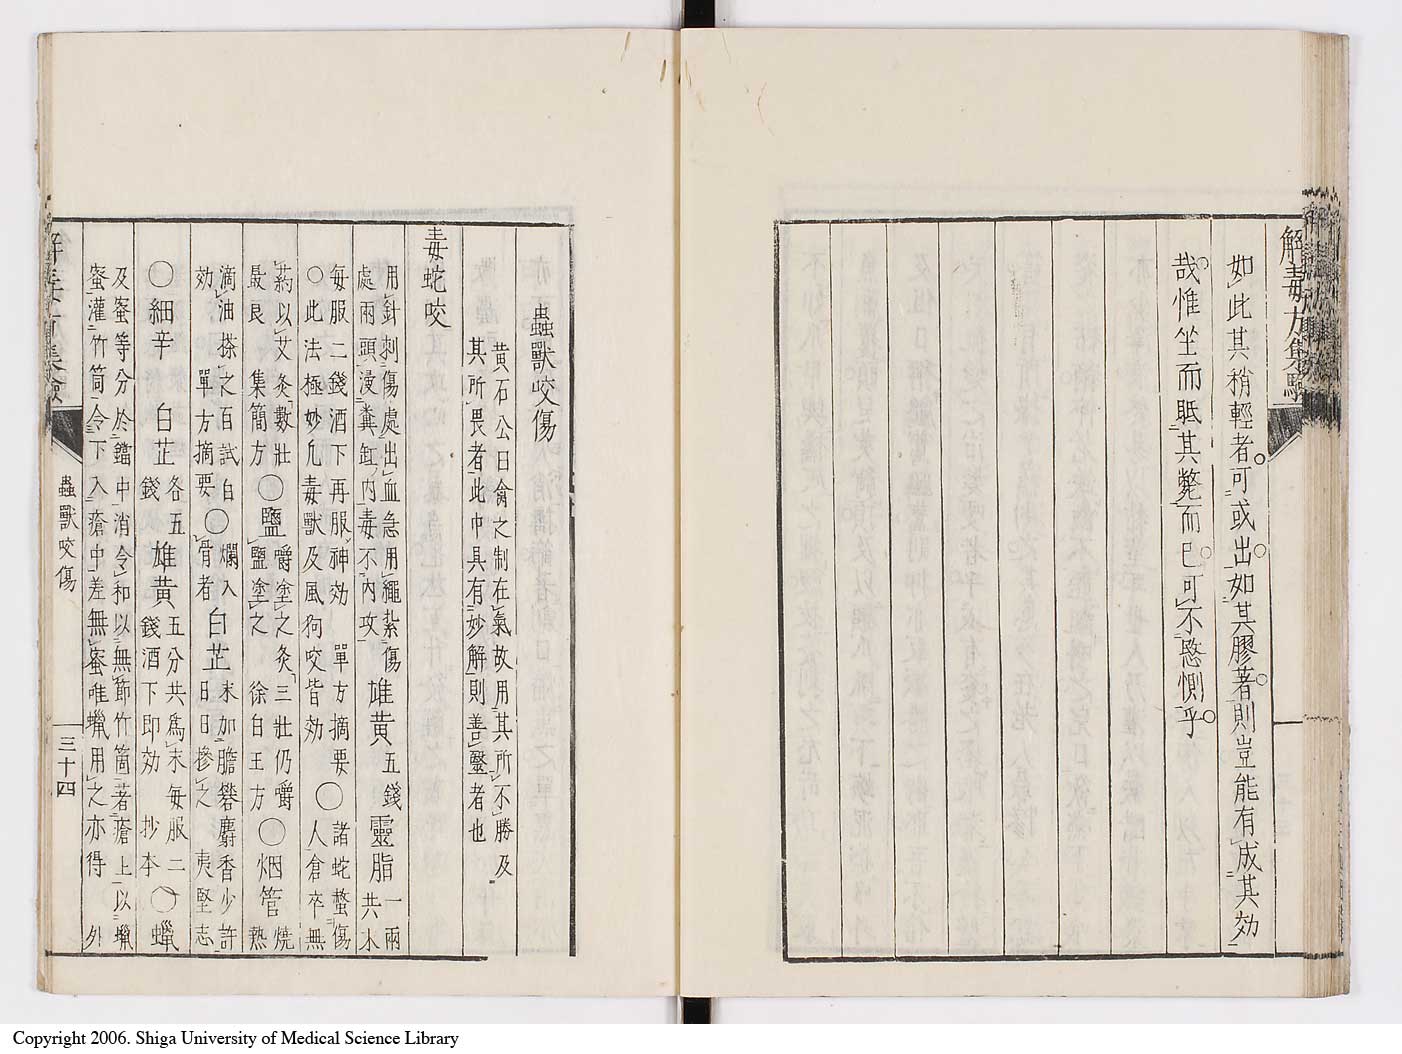 解毒方集驗
如此其稍輕者可或出如其膠著則豈能有成其効
哉惟坐而眂其斃而已可不愍惻乎
蟲獸咬傷
黄石公曰禽之制在氣故用其所不勝及
其所畏者此巾具有妙解則善毉者也
毒蛇咬
用針刺傷處出血急用繩紮傷雄黄五錢靈脂一兩
處兩頭浸糞缸内毒不内攻共末
毎服二錢酒下再服神効 單方摘要〇諸蛇螫傷
〇此法極妙凢毒獸及風狗咬皆効 人倉卒無
藥以艾灸數壯
最良 集簡方〇鹽嚼塗之灸三壯仍嚼
鹽塗之 徐伯玉方〇烟管焼
熱
滴油搽之百試百
効 單方摘要〇爛入
骨者白芷末加膽礬麝香少許
日日摻之 夷堅志
〇細辛 白芷各五
錢雄黄五分共爲末毎服二
錢酒下即効 抄本〇蠟
及蜜等分於鐺中消令和以無節竹筒著瘡上以蠟
蜜灌竹筒令下入瘡中差無蜜唯蠟用之亦得 外
蟲獸咬傷
三十四
Copyright 2006. Shiga University of Medical Science Library